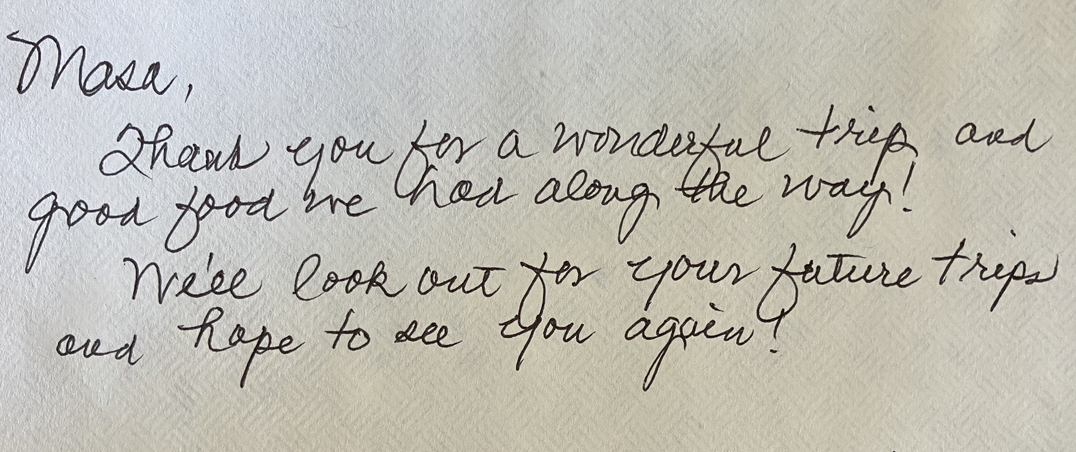 Masa,
Thank you for a wonderful trip and
good food we had along the way!
We'll look out for your future trips
and hope to see you again!